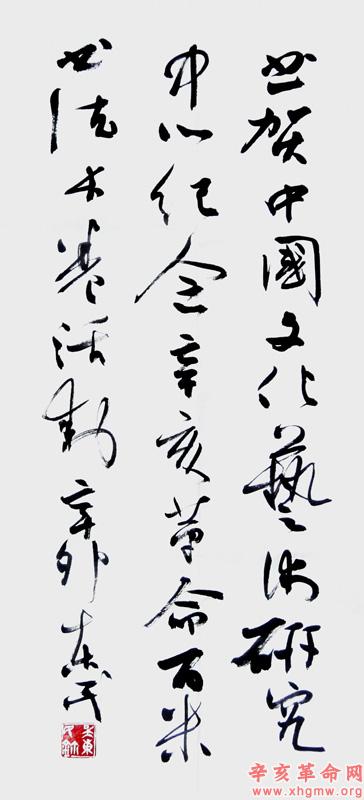 书贺中國文化藝術研究
中心纪念辛亥革命百米
书法长卷活動 辛卯 东民
辛亥革命网
www.xhgmw.org